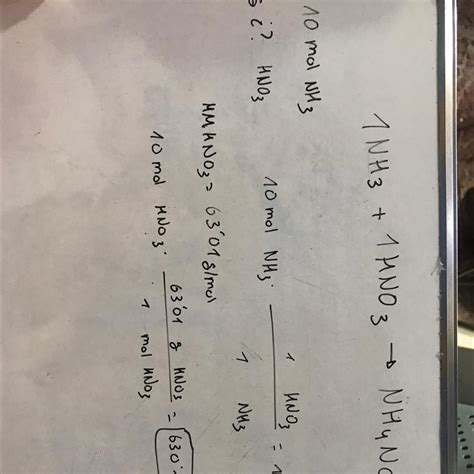 1 NH3 + 1 HNO3 → NH4NO
10 mol NH3
¿? HNO3
10 mol NH3 · 1 HNO3 / 1 NH3 = 1
MM HNO3 = 63'01 g/mol
10 mol HNO3 · 63'01 g HNO3 / 1 mol HNO3 = 630